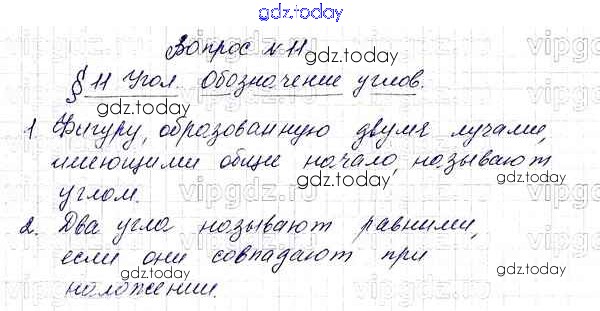 gdz.today
Вопрос №11
gdz.today
§ 11 Угол. Обозначение углов.
gdz.today
gdz.today
1. Фигуру, образованную двумя лучами,
gdz.today
имеющими общие начало, называют
gdz.today
углом.
vipgdz.ru
2. Два угла называют равными,
gdz.today
если они совпадают при
gdz.today
gdz.today
наложении.